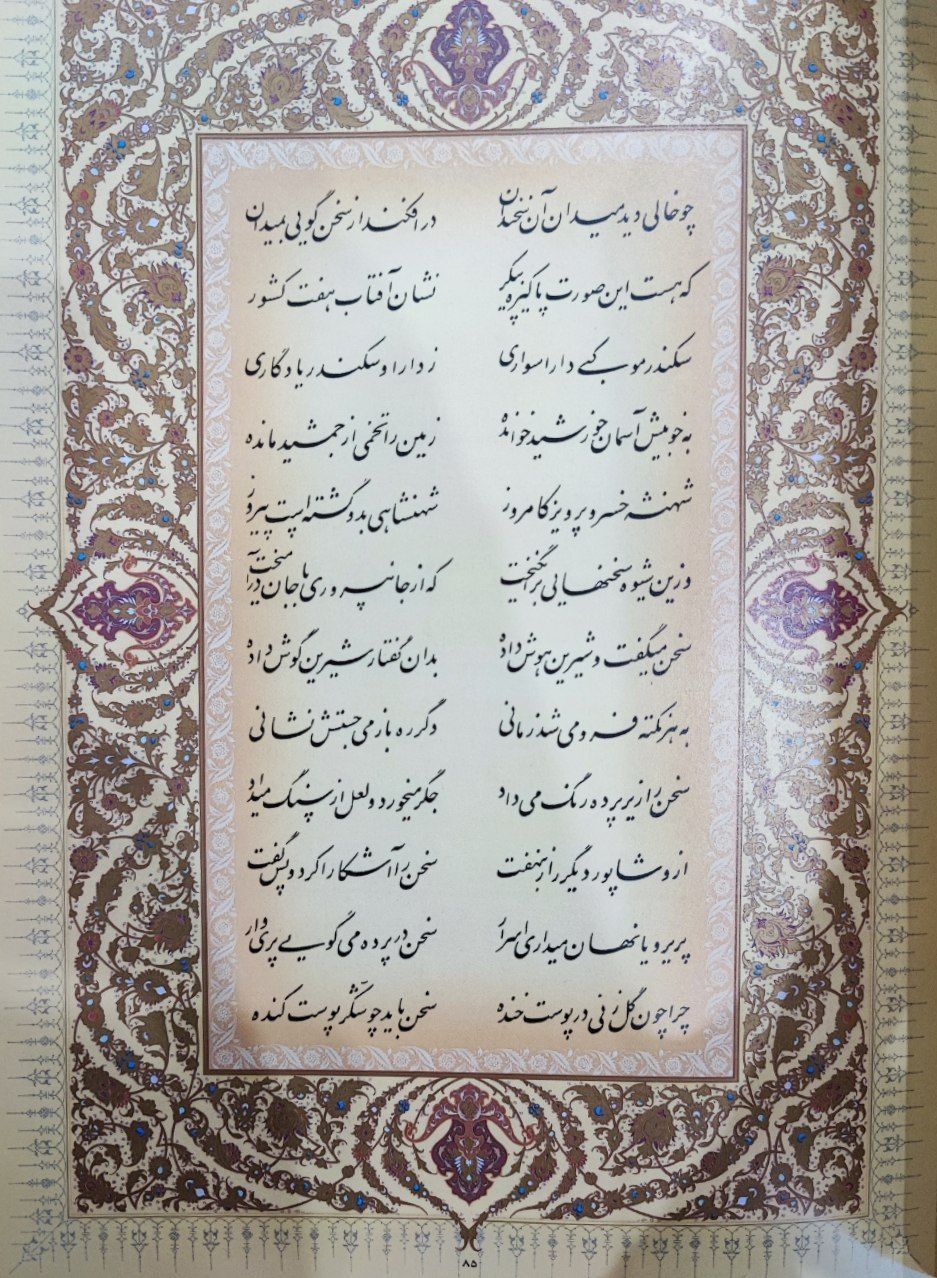 چو خالی دید میدان آن سخندان در افکند از سخن گویی بمیدان
که هست این صورت پاکیزه پیکر نشان آفتاب هفت کشور
سکندر موکبی دارا سواری ز دارا و سکندر یادگاری
به خوبیش آسمان خورشید خوانده زمین را تخمی از جمشید مانده
شهنشه خسرو پرویز کامروز شهنشاهی بدو گشته است پیروز
وزین شیوه سخنهایی برانگیخت که از جانپروری با جان درآمیخت
سخن میگفت و شیرین هوش داده بدان گفتار شیرین گوش داده
به هر نکته فرو می شد زمانی دگر ره باز می جستش نشانی
سخن را زیر پرده رنگ می داد جگر میخورد و لعل از سنگ میداد
ازو شاپور دیگر راز ننهفت سخن را آشکارا کرد و پس گفت
پریرویا نهان میداری اسرار سخن در پرده می گویی پری وار
چرا چون گل زنی در پوست خنده سخن باید چو شکّر پوست کنده
۸۵